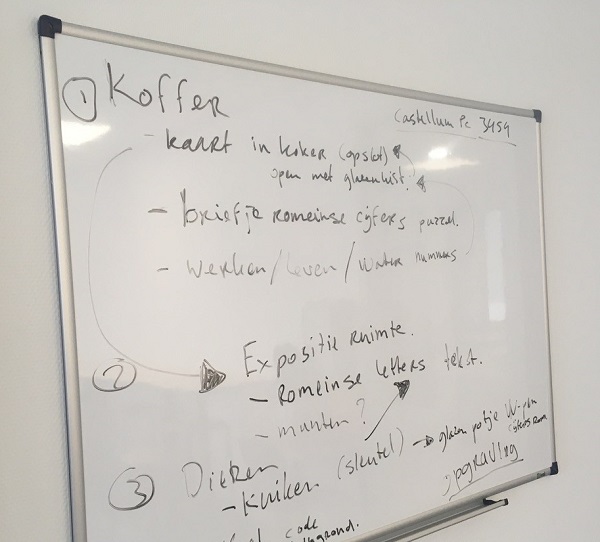 ① Koffer
Castellum Pc 3454
- kaart in koker (opslot)
open met glazenkist.
- briefje romeinse cijfers puzzel.
- werken/leven/water nummers
② Expositie ruimte.
- Romeinse letters tekst.
- munten?
③ Dieren
- Kuiken (sleutel) → glazen potje UV-pen
opgraving
code